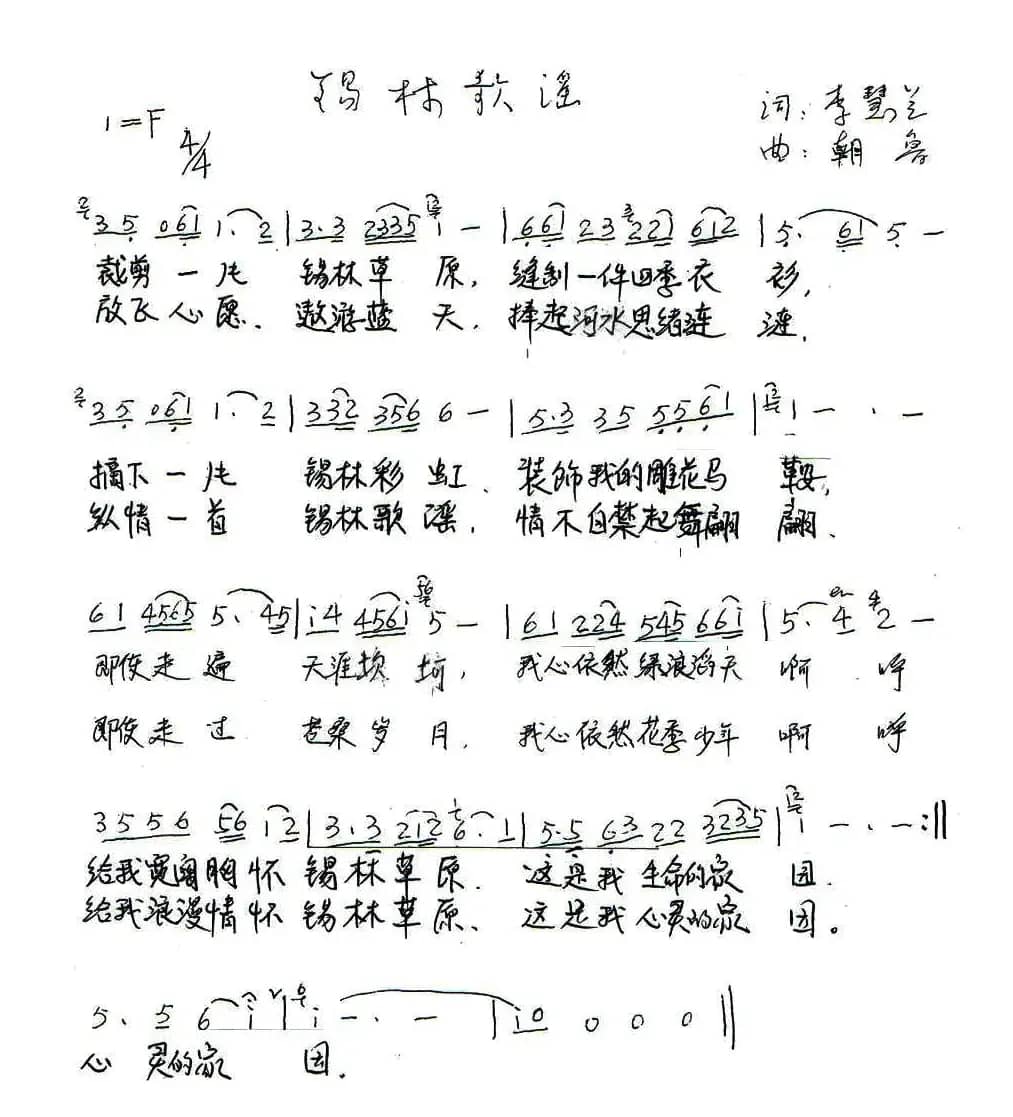 锡林歌谣
1=F 4/4
词:李慧兰
曲:朝鲁
3 5 0 6 1 1. 2 | 3.3 2335 1 - | 6 6 1 2 3 2 2 1 6 1 2 | 5. 6 1 5 -
裁剪一片 锡林草原, 缝制一件四季衣衫,
放飞心愿、遨游蓝天, 捧起河水思绪涟涟.
3 5 0 6 1 1. 2 | 3 3 2 3 5 6 6 - | 5.3 3 5 5 5 6 1 | 1 - . -
摘下一片 锡林彩虹、装饰我的雕花马鞍,
纵情一首 锡林歌谣, 情不自禁起舞翩翩.
6 1 4565 5. 45 | i 4 4 5 6 i 5 - | 6 1 2 2 4 5 4 5 6 6 i | 5. 4 2 -
即使走遍 天涯坎坷, 我心依然绿浪滔天 啊 呼
即使走过 苍桑岁月, 我心依然花季少年 啊 呼
3 5 5 6 5 6 i 2 | 3.3 2 1 2 6. 1 | 5.5 6 3 2 2 3 2 3 5 | 1 - . - :||
给我宽阔胸怀 锡林草原. 这是我 生命的家园.
给我浪漫情怀 锡林草原、 这是我 心灵的家园。
5. 5 6 i | i - . - | i 0 0 0 0 ||
心 灵的家 园.